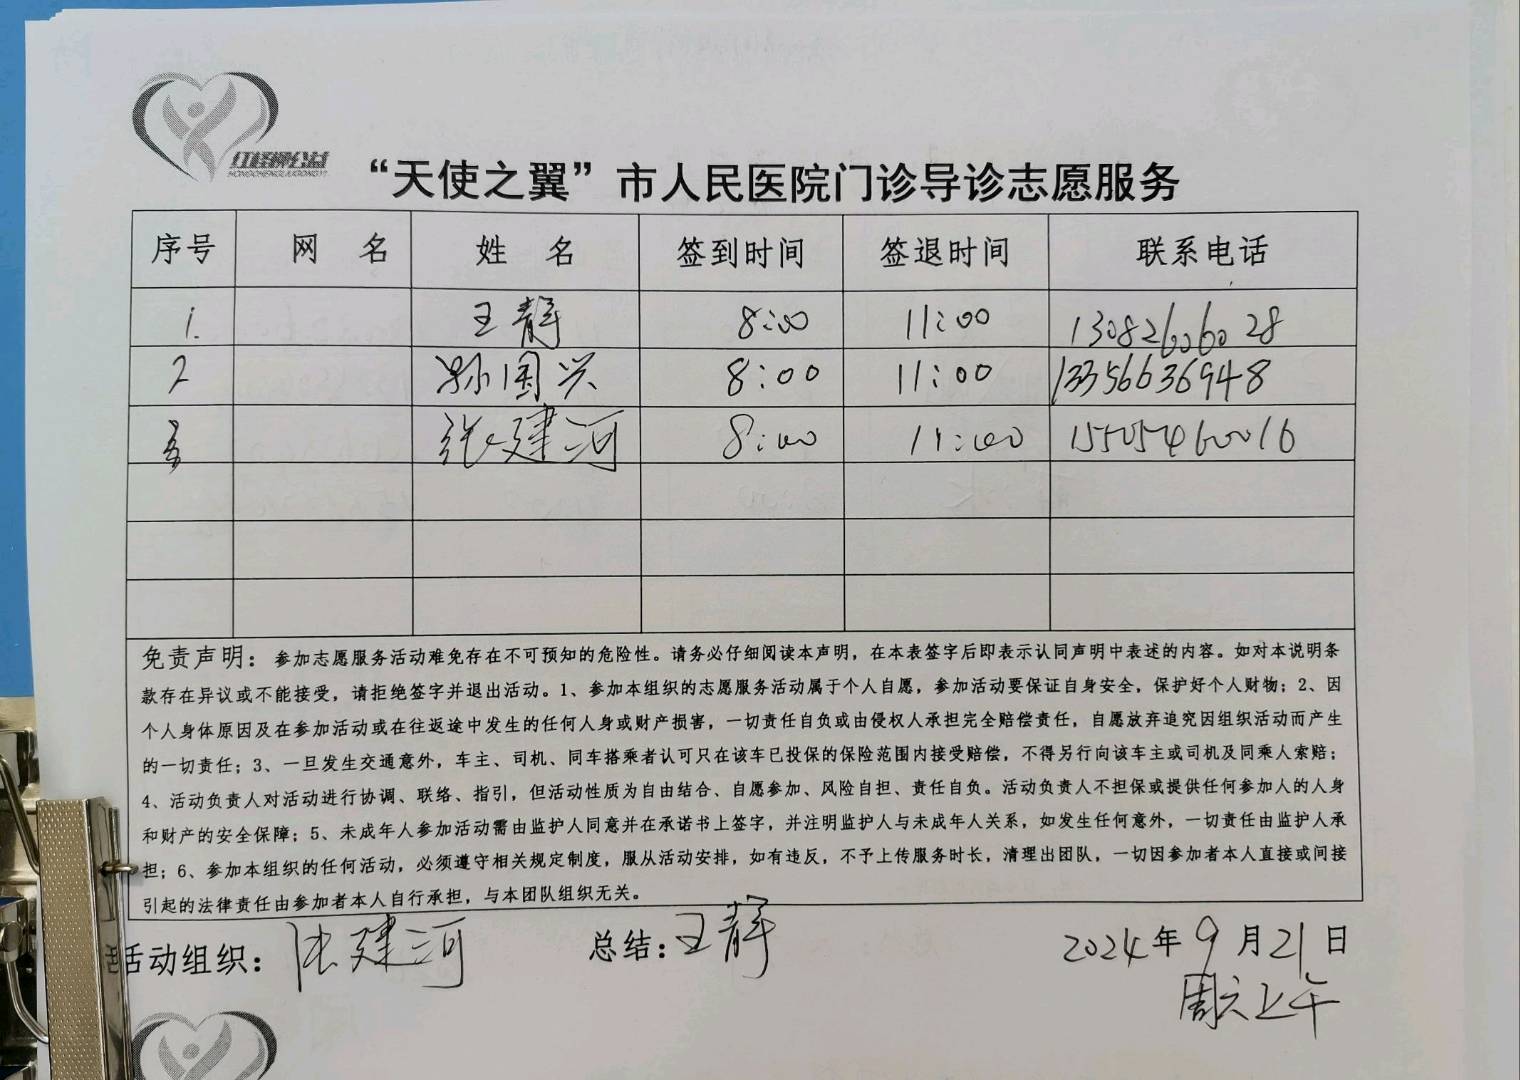 红柽柳公益
HONGCHENGLIUGONGYI
“天使之翼”市人民医院门诊导诊志愿服务
序号 网 名 姓 名 签到时间 签退时间 联系电话
1. 王静 8:00 11:00 13082606028
2 孙国兴 8:00 11:00 13356636948
3 张建河 8:00 11:00 15505460016
免责声明：参加志愿服务活动难免存在不可预知的危险性。请务必仔细阅读本声明，在本表签字后即表示认同声明中表述的内容。如对本说明条
款存在异议或不能接受，请拒绝签字并退出活动。1、参加本组织的志愿服务活动属于个人自愿，参加活动要保证自身安全，保护好个人财物；2、因
个人身体原因及在参加活动或在往返途中发生的任何人身或财产损害，一切责任自负或由侵权人承担完全赔偿责任，自愿放弃追究因组织活动而产生
的一切责任；3、一旦发生交通意外，车主、司机、同车搭乘者认可只在该车已投保的保险范围内接受赔偿，不得另行向该车主或司机及同乘人索赔；
4、活动负责人对活动进行协调、联络、指引，但活动性质为自由结合、自愿参加、风险自担、责任自负。活动负责人不担保或提供任何参加人的人身
和财产的安全保障；5、未成年人参加活动需由监护人同意并在承诺书上签字，并注明监护人与未成年人关系，如发生任何意外，一切责任由监护人承
担；6、参加本组织的任何活动，必须遵守相关规定制度，服从活动安排，如有违反，不予上传服务时长，清理出团队，一切因参加者本人直接或间接
引起的法律责任由参加者本人自行承担，与本团队组织无关。
活动组织：张建河 总结：王静 2024年9月21日
周六上午